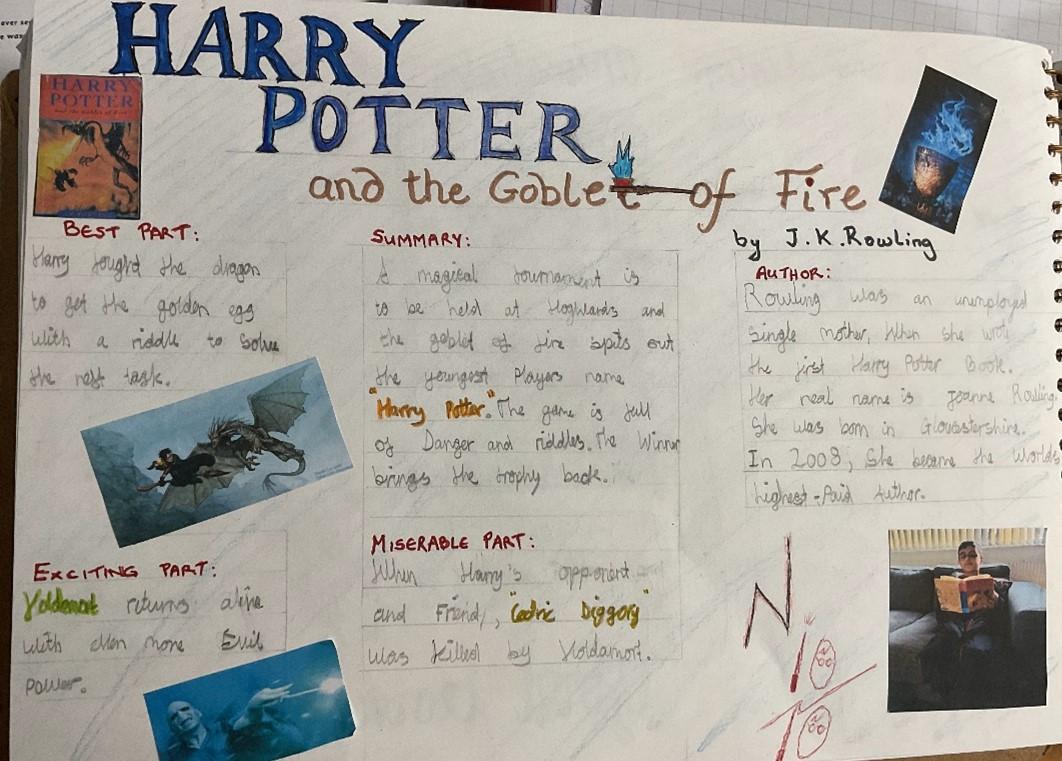 HARRY
POTTER
and the Goblet of Fire
HARRY
POTTER
and the Goblet of Fire
by J.K.Rowling
BEST PART:
Harry fought the dragon
to get the golden egg
with a riddle to Solve
the next task.
SUMMARY:
A magical tournament is
to be held at Hogwards and
the goblet of fire spits out
the youngest Players name
"Harry Potter". The game is full
of Danger and riddles. The Winner
brings the trophy back.
AUTHOR:
Rowling was an unemployed
single mother, When she wrote
the first Harry Potter Book.
Her real name is Joanne Rowling.
She was born in Gloucestershire.
In 2008, She became the Worlds
highest-Paid Author.
EXCITING PART:
Voldemort returns alive
with even more Evil
power.
MISERABLE PART:
When Harry's opponent
and Friend, "Cedric Diggory"
was killed by Voldamort.
ever
e was